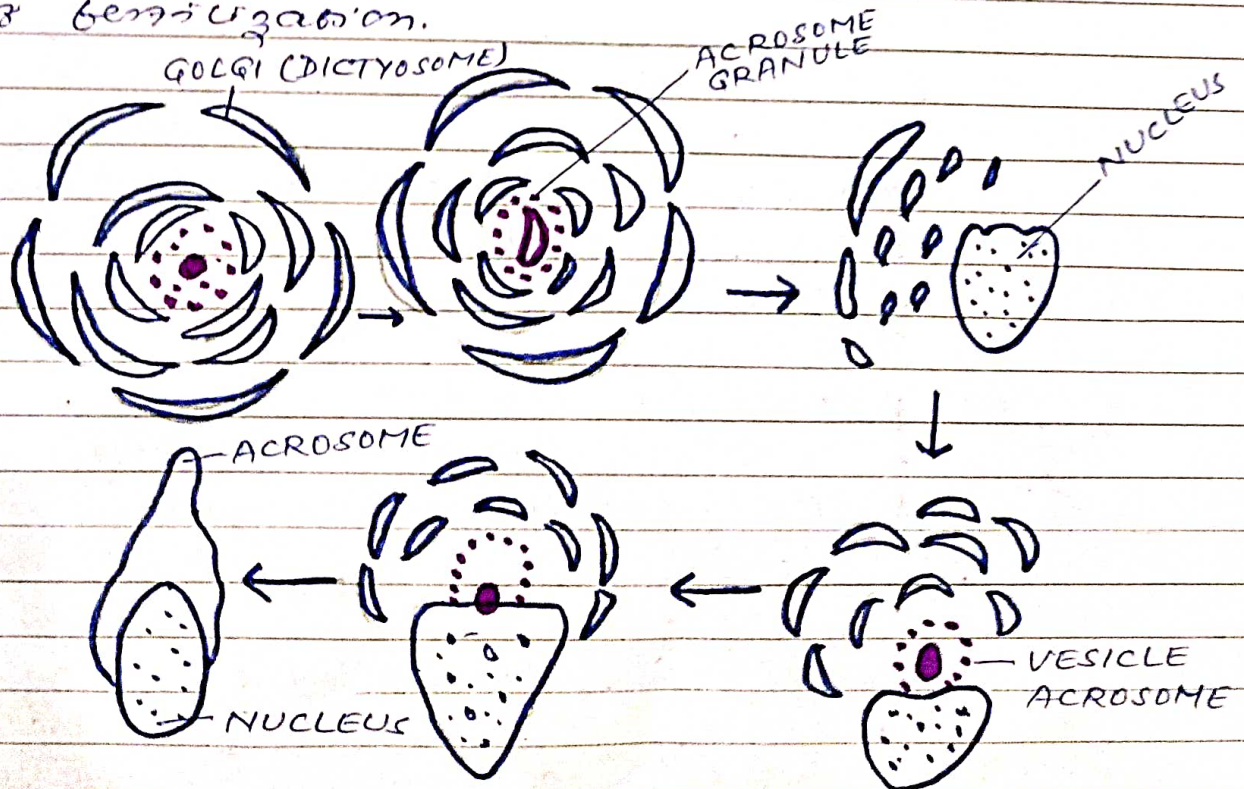 fertilization.
GOLGI (DICTYOSOME)
ACROSOME
GRANULE
NUCLEUS
ACROSOME
VESICLE
ACROSOME
NUCLEUS